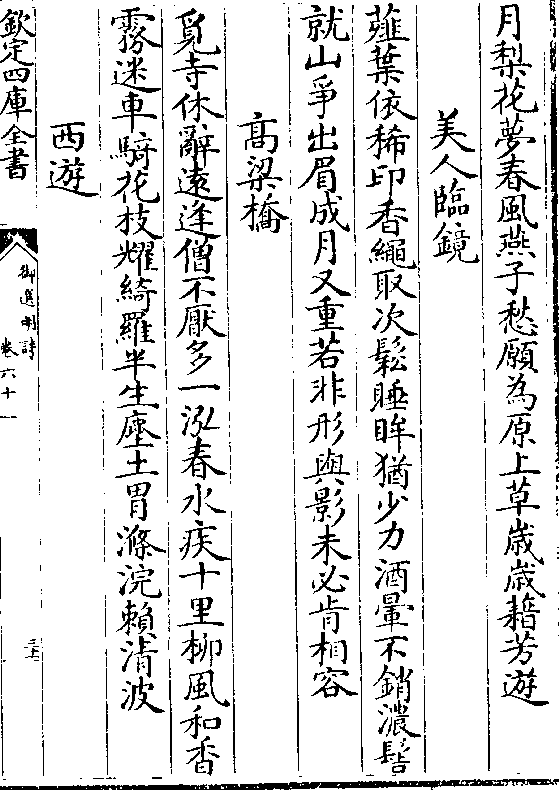 月梨花夢春風燕子愁願為原上草歲歲藉芳遊
美人臨鏡
薤葉依稀印香繩取次鬆睡眸猶少力酒暈不銷濃髻
就山爭出眉成月又重若非形與影未必肯相容
高梁橋
覓寺休辭遠逢僧不厭多一泓春水疾十里柳風和香
霧迷車騎花枝耀綺羅半生塵土胃滌浣賴清波
西遊
欽定四庫全書
御選明詩
卷六十一